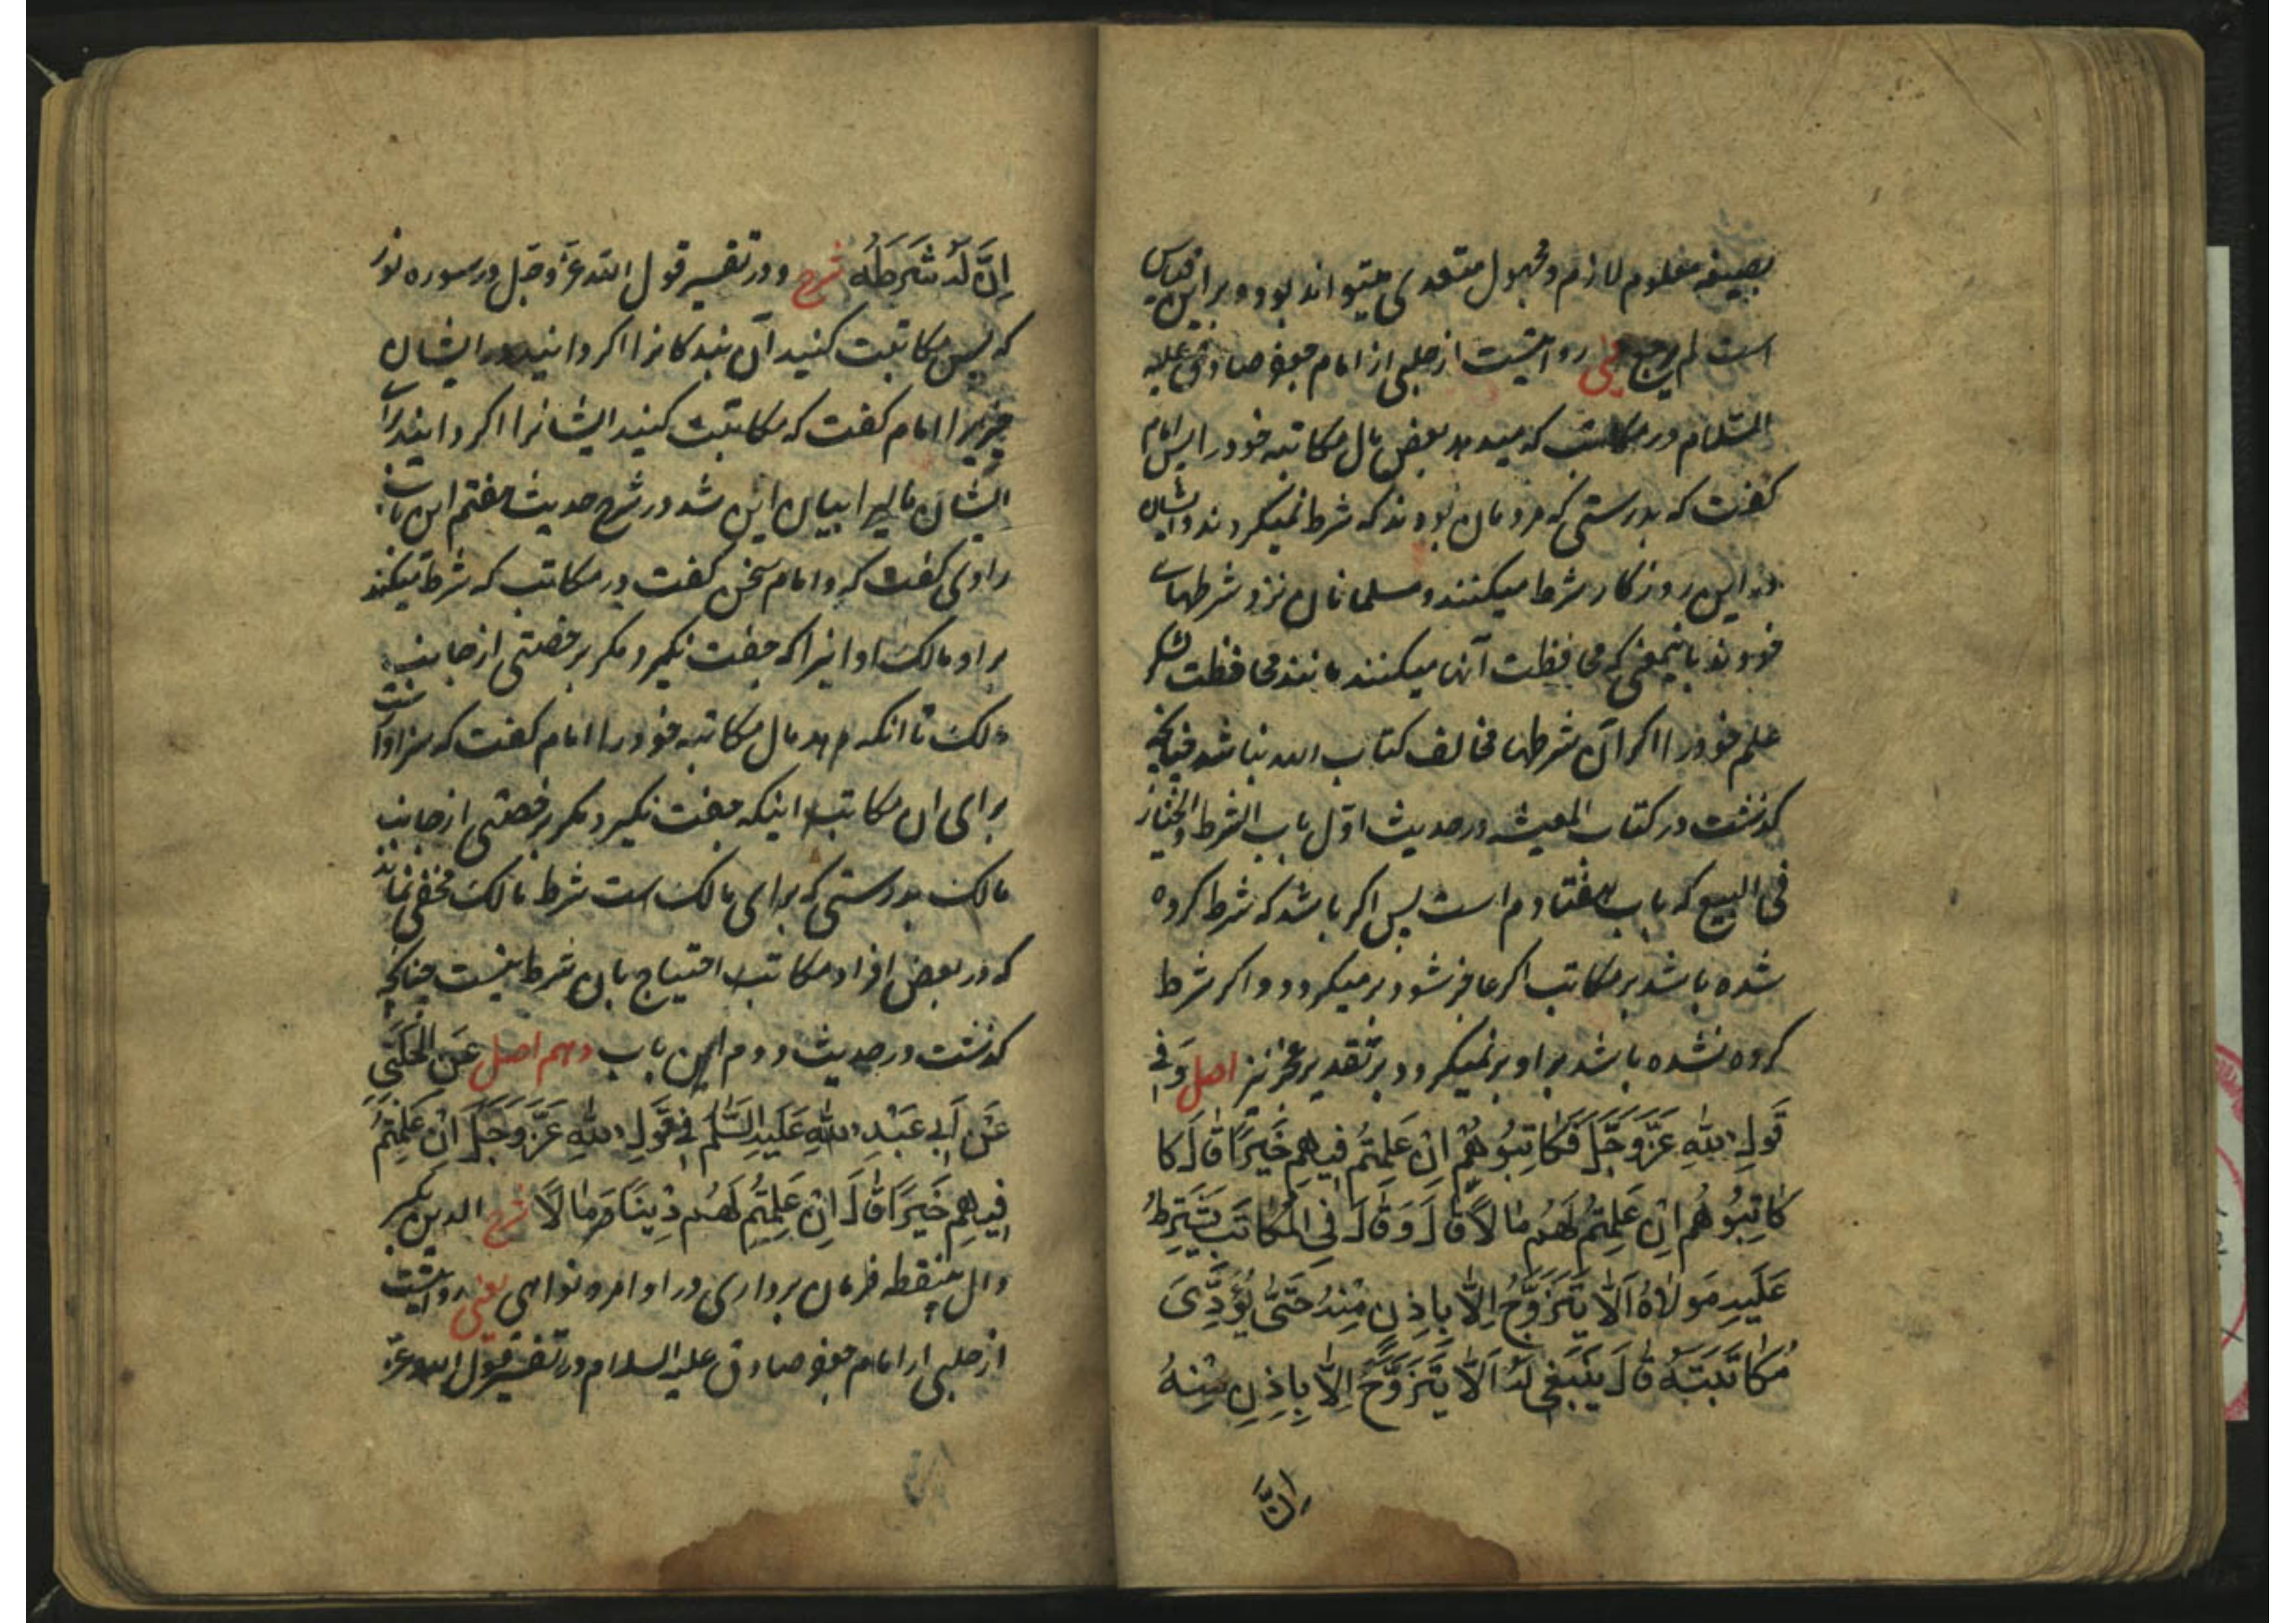 بصیغه معلوم لازم و مجهول متعدی میتواند بود و بر این قیاس
است لم یرجع یعنی روایتست از حلبی از امام جعفر صادق علیه
السّلام در مکاتب که میدهد بعض مال مکاتبه خود را پس امام
گفت که بدرستی که مردمان بودند که شرط نمیکردند و ایشان
در این روزکار شرط میکنند و مسلمانان نزد شرطهای
خودند باینمعنی که محافظت آنها میکنند مانند محافظت لشکر
علم خود را اکر آن شرطها مخالف کتاب الله نباشد چنانچه
کذشت در کتاب المعیشه در حدیث اوّل باب الشرط و الخیار
فی البیع که باب هفتادم است پس اکر باشد که شرط کرده
شده باشد بر مکاتب اکر عاجز شود بر میکردد و اکر شرط
کرده نشده باشد بر او بر نمیکردد بر تقدیر عجز نیز اصل وَفی
قَولِ اللهِ عَزَّوَجَلَّ فَکَاتِبُوهُم اِنْ عَلِمتُم فیهِم خَیرًا قَالَ کا
کَاتِبُوهُم اِنْ عَلِمتُم لَهُم مَالاً قالَ وَقالَ فِی المُکاتَبِ یَشتَرِطُ
عَلَیهِ مَولاهُ اَلّا یَتَزَوَّجَ اِلّا باِذنٍ مِنْهُ حَتّیٰ یُؤَدِّیَ
مُکَاتَبَتَهُ قَالَ یَنبَغی لَهُ اَلّا یَتَزَوَّجَ اِلّا بِاِذنٍ مِنْهُ
اِنَّ
اِنَّ لَهُ شَرطَهُ شرح و در تفسیر قول الله عزّ و جلّ در سوره نور
که پس مکاتبت کنید آن بندکانرا اکر دانید در ایشان
خیر را امام گفت که مکاتبت کنید ایشانرا اکر دانید برای
ایشان مالیرا بیان این شد در شرح حدیث هفتم این باب
راوی گفت که و امام سخن گفت در مکاتب که شرط میکند
بر او مالک او اینرا که جفت نگیرد مکر برخصتی از جانب
مالک تا انکه دهد مال مکاتبه خود را امام گفت که سزاوار است
برای ان مکاتب اینکه جفت نگیرد مکر برخصتی از جانب
مالک بدرستی که برای مالک است شرط مالک مخفی نماند
که در بعض افراد مکاتب احتیاج بان شرط نیست چنانچه
کذشت در حدیث دوم این باب دهم اصل عَنِ الحَلَبیِّ
عَن اَبی عَبْدِ اللهِ عَلَیهِ السَّلٰم فی قَولِ اللهِ عَزَّوَجَلَّ اِنْ عَلِمتُم
فِیهِم خَیرًا قَالَ اِنْ عَلِمتُم لَهُم دِینًا وَ مَالاً شرح الدین بکسر
دال بینقطه فرمان برداری در اوامر و نواهی یعنی روایتست
از حلبی از امام جعفر صادق علیه السلام در تفسیر قول الله عزّ